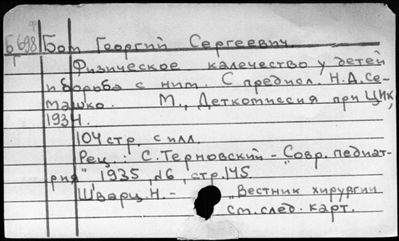 Б698 Бом Георгий Сергеевич.
Физическое калечество у детей
и борьба с ним. С предисл. Н.А. Се-
машко. М., Деткомиссия при ЦИК,
1934.
104 стр. с илл.
Рец.: С. Терновский - "Совр. педиат-
рия", 1935, №6, стр. 145.
Шварц Н. - "Вестник хирургии
см. след. карт.